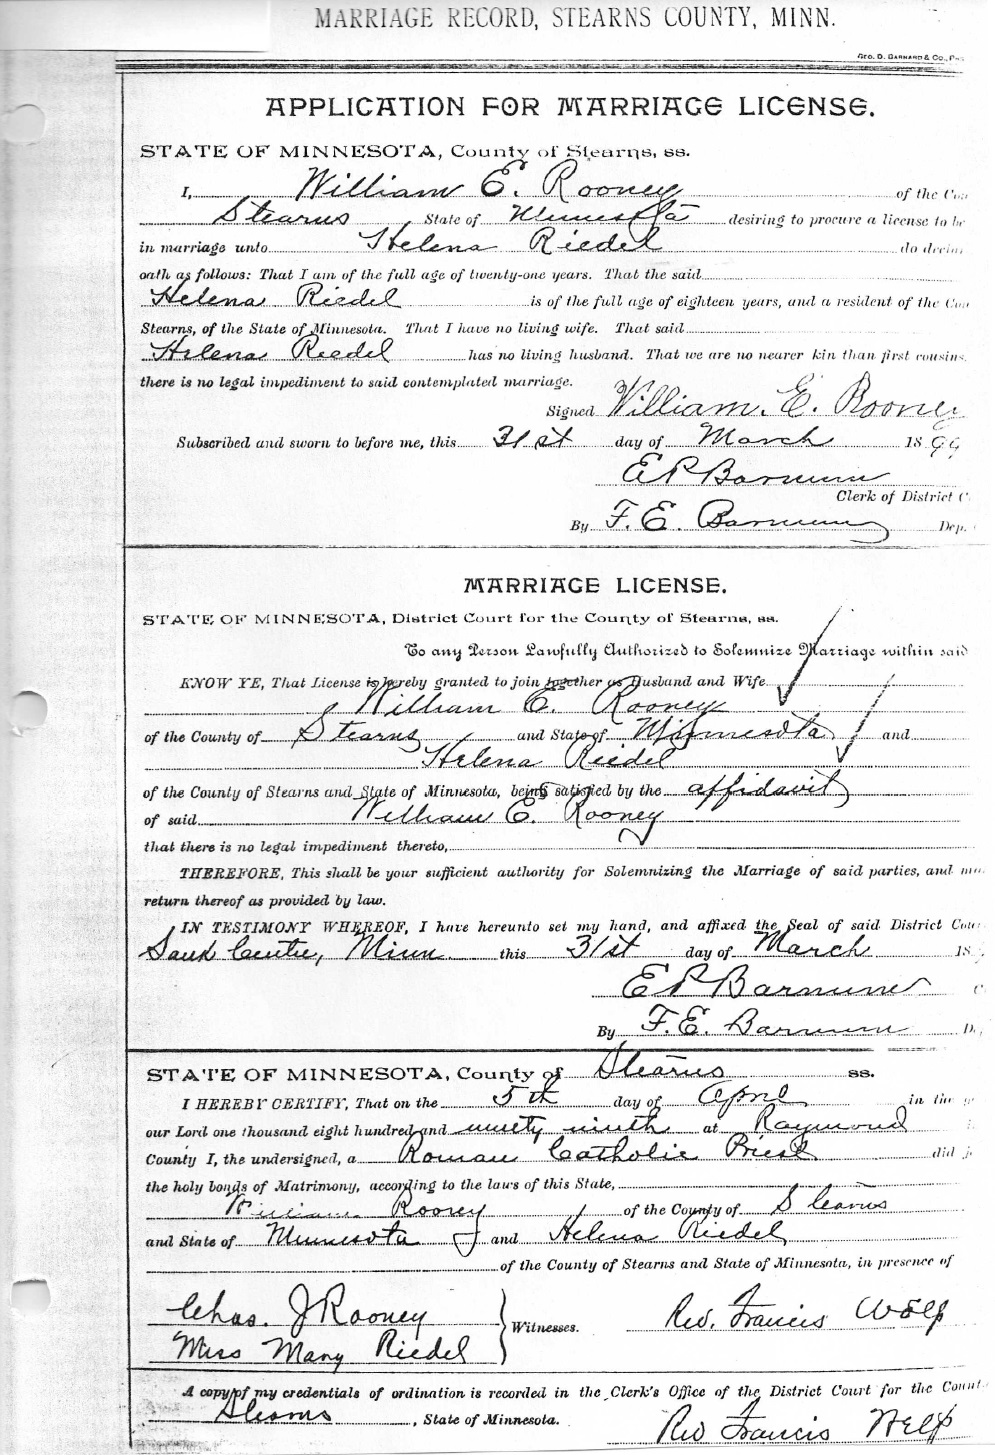 MARRIAGE RECORD, STEARNS COUNTY, MINN.
GEO. D. BARNARD & CO.,
APPLICATION FOR MARRIAGE LICENSE.
STATE OF MINNESOTA, County of Stearns, ss.
I, William E. Rooney of the
Stearns State of Minnesota desiring to procure a license to be
in marriage unto Helena Riedel do
oath as follows: That I am of the full age of twenty-one years. That the said
Helena Riedel is of the full age of eighteen years, and a resident of the
Stearns, of the State of Minnesota. That I have no living wife. That said
Helena Riedel has no living husband. That we are no nearer kin than first cousins,
there is no legal impediment to said contemplated marriage.
Signed William. E. Rooney
Subscribed and sworn to before me, this 31st day of March 1899
E P Barnum
Clerk of District C
By F. E. Barnum Dep.
MARRIAGE LICENSE.
STATE OF MINNESOTA, District Court for the County of Stearns, ss.
To any Person Lawfully Authorized to Solemnize Marriage within said
KNOW YE, That License is hereby granted to join together as Husband and Wife
William E. Rooney
of the County of Stearns and State of Minnesota and
Helena Riedel
of the County of Stearns and State of Minnesota, being satisfied by the affidavit
of said William E. Rooney
that there is no legal impediment thereto,
THEREFORE, This shall be your sufficient authority for Solemnizing the Marriage of said parties, and
return thereof as provided by law.
IN TESTIMONY WHEREOF, I have hereunto set my hand, and affixed the Seal of said District
Sauk Centre, Minn this 31st day of March 18
E P Barnum
By F. E. Barnum D
STATE OF MINNESOTA, County of Stearns ss.
I HEREBY CERTIFY, That on the 5th day of April in the
our Lord one thousand eight hundred and ninety ninth at Raymond
County I, the undersigned, a Roman Catholic Priest did
the holy bonds of Matrimony, according to the laws of this State,
William Rooney of the County of Stearns
and State of Minnesota and Helena Riedel
of the County of Stearns and State of Minnesota, in presence of
Chas. J Rooney
Witnesses.
Rev. Francis Welp
Miss Mary Riedel
A copy of my credentials of ordination is recorded in the Clerk's Office of the District Court for the
Stearns, State of Minnesota.
Rev Francis Welp